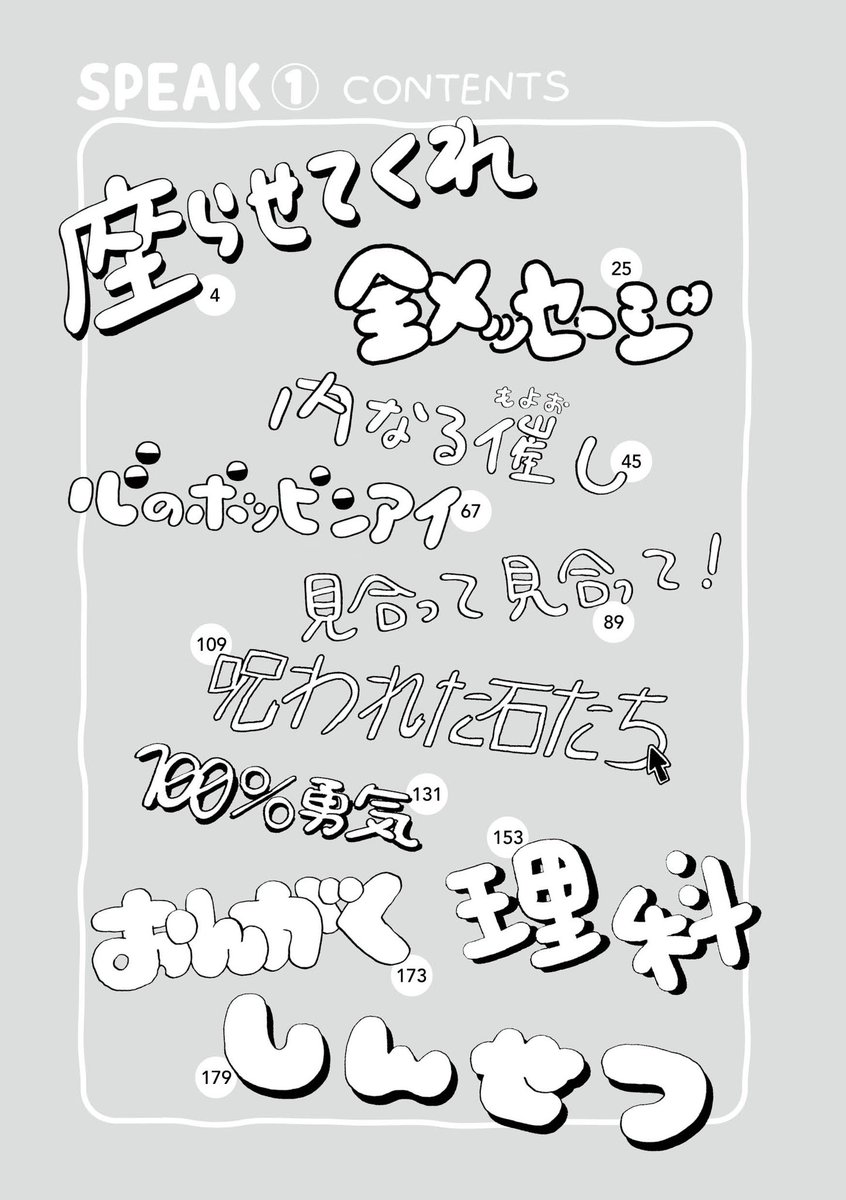 SPEAK① CONTENTS
座らせてくれ
4
全メッセージ
25
内なる催し
もよお
45
心のポッピンアイ
67
見合って見合って！
89
呪われた石たち
109
100%勇気
131
理科
153
おんがく
173
しんせつ
179